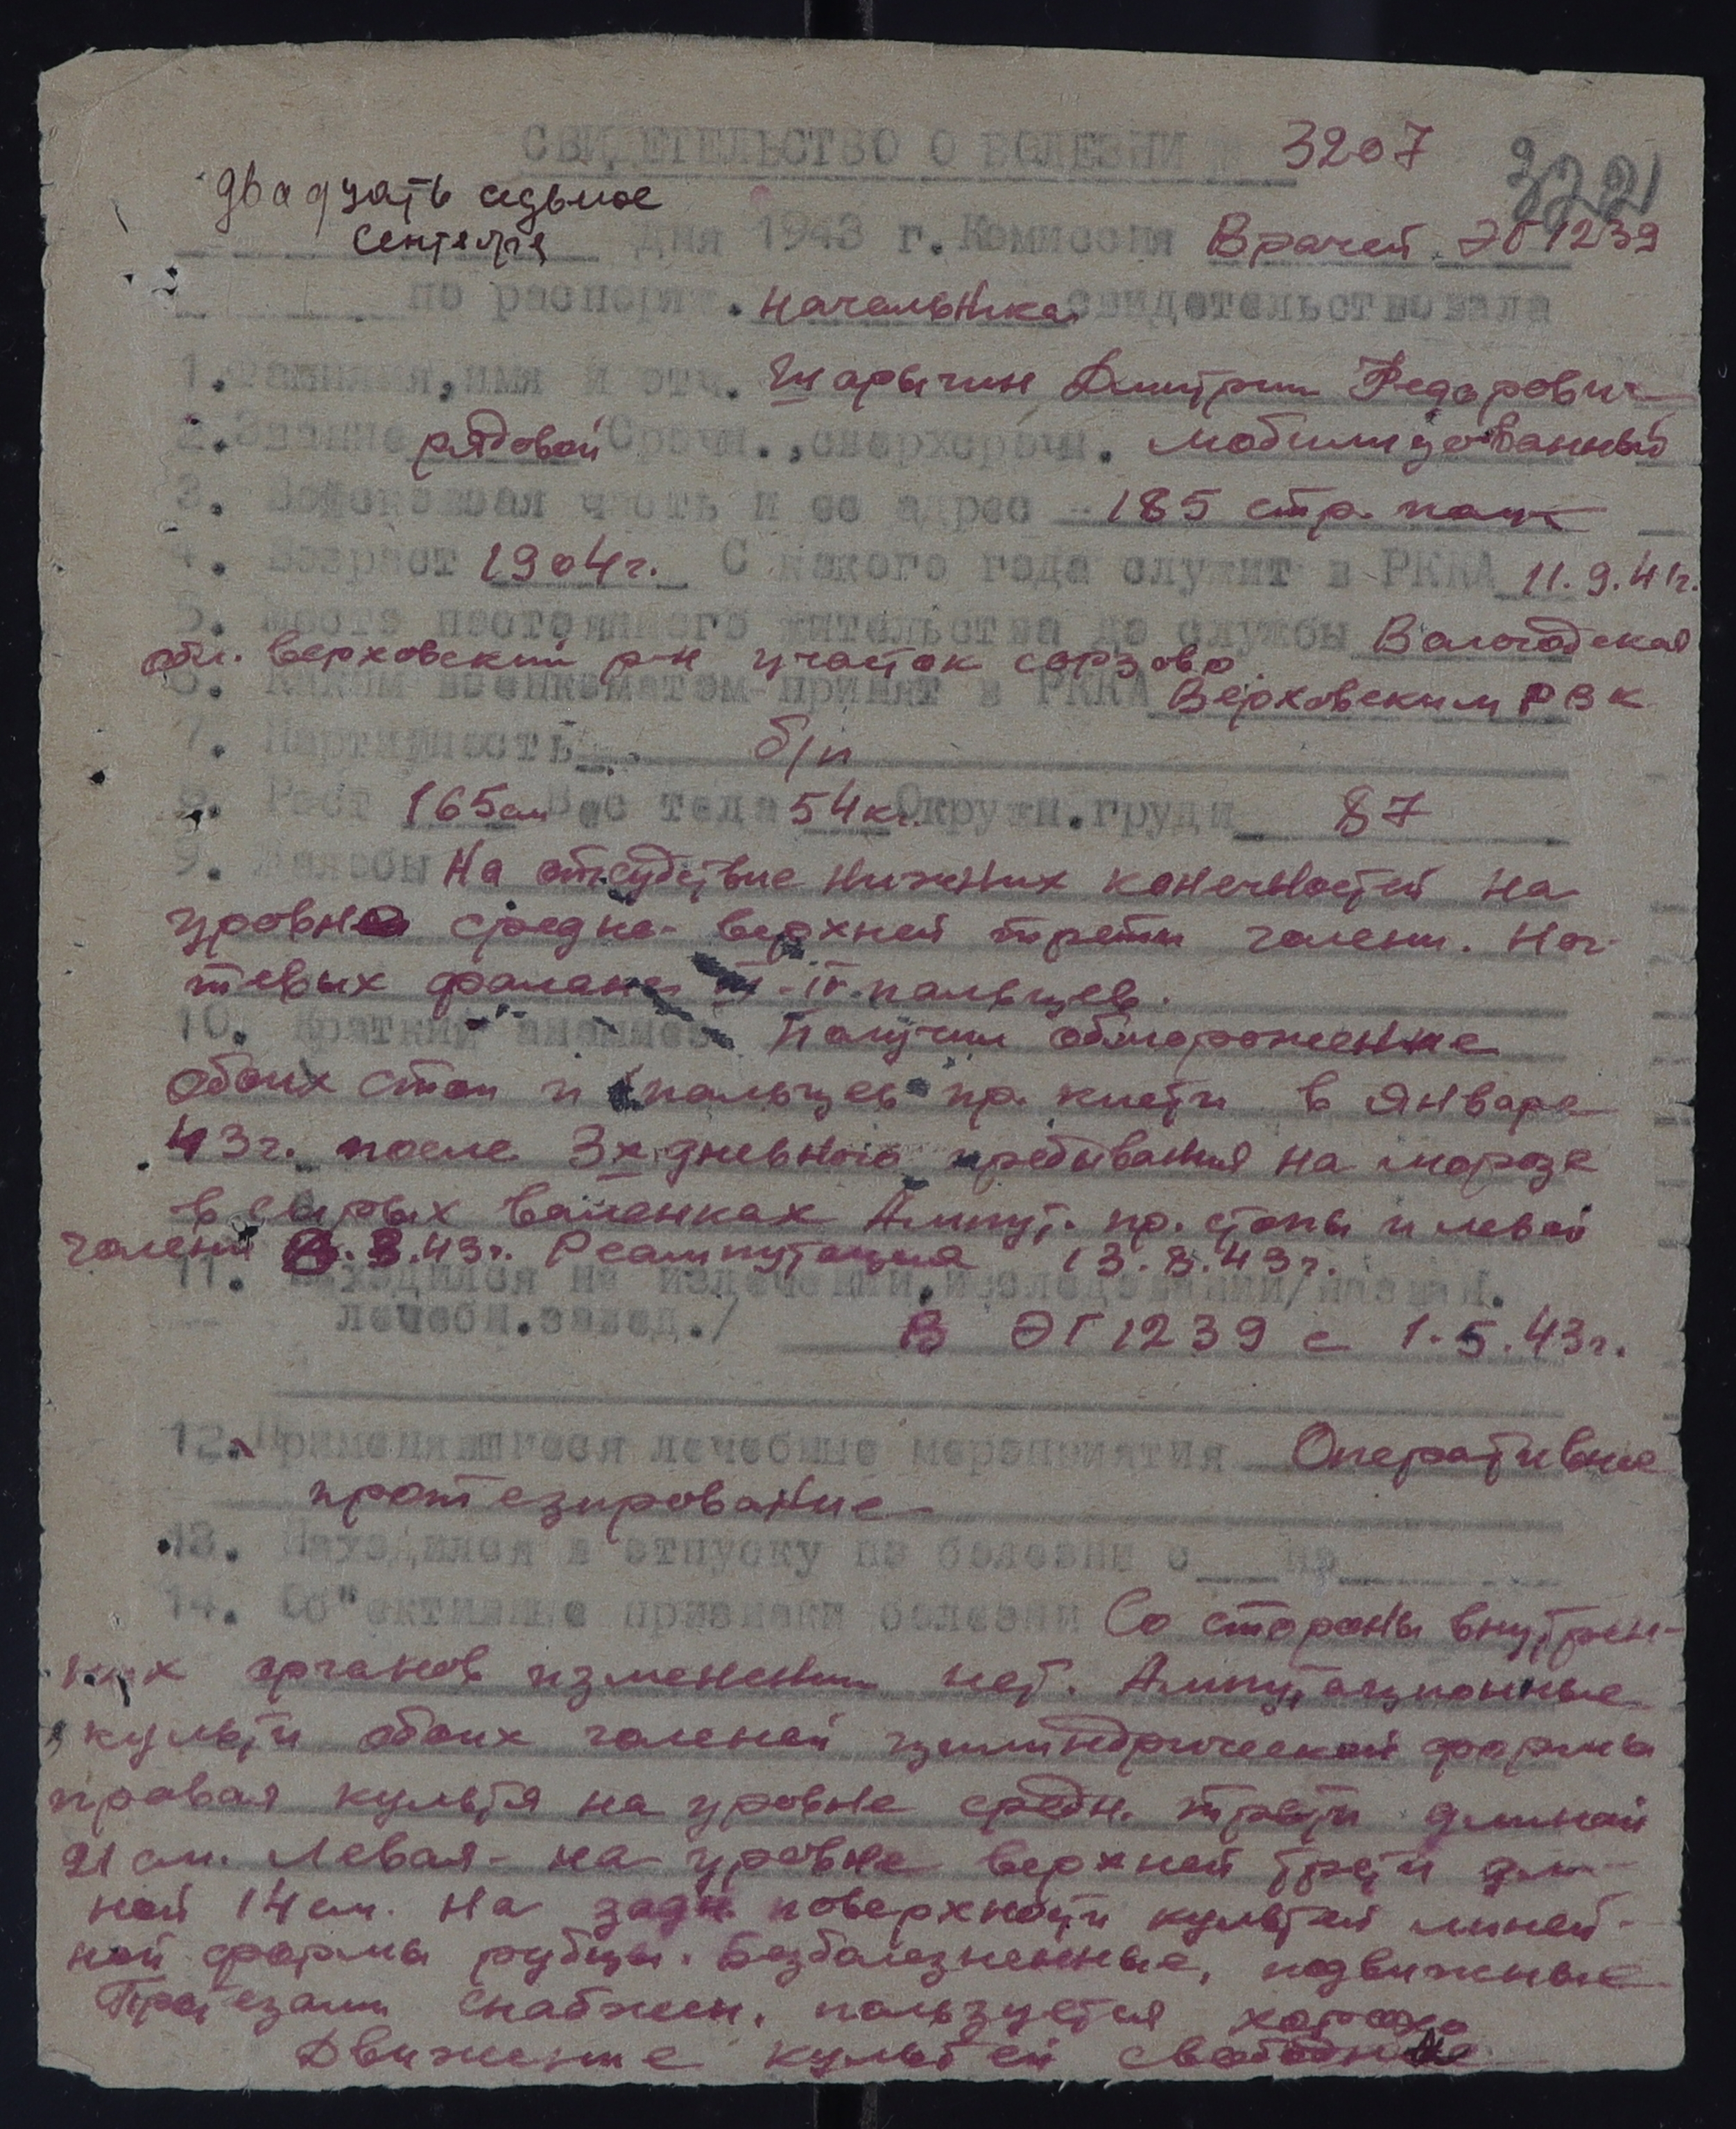 СВИДЕТЕЛЬСТВО О БОЛЕЗНИ № 3207
322
двадцать седьмое
сентября дня 1943 г. Комиссия Врачей ЭГ 1239
по распоряж. начальника свидетельствовала
1. Фамилия, имя и отч. Шарыгин Дмитрий Федорович
2. Звание рядовой Срочн., сверхсрочн. мобилизованный
3. Войсковая часть и ее адрес 185 стр. полк
4. Возраст 1904 г. С какого года служит в РККА 11.9.41г.
5. Место постоянного жительства до службы Вологодская
обл. Верховский р-н участок
6. Каким военкоматом принят в РККА Верховским РВК
7. Партийность б/п
8. Рост 165см Вес тела 54кг. Окружн. груди 87
9. Жалобы На отсудствие нижних конечностей на
уровне средне-верхней трети голени. Ног-
тевых фаланг III-IV пальцев.
10. Краткий анамнез Получил обморожение
обоих стоп и пальцев пр. кисти в январе
43г. после 3х дневного пребывания на морозе
в сырых валенках Ампут. пр. стопы и левой
голени 3.43г. Реампутация 13.8.43г.
11. Находился на излечении, исследовании/назван.
лечебн. завед./ В ЭГ 1239 с 1.5.43г.
12. Применявшиеся лечебные мероприятия Оперативные
протезирование
13. Находился в отпуску по болезни с по
14. Об"ективные признаки болезни Со стороны внутрен-
них органов изменений нет. Ампутационные
культи обоих голеней цилиндрической формы
правая культя на уровне средн. трети длиной
21 см. Левая - на уровне верхней трети дли-
ной 14 см. На задн. поверхности культей линей-
ной формы рубцы. Безболезненные, подвижные
Протезами снабжен, пользуется хорошо
Движение культей свободные